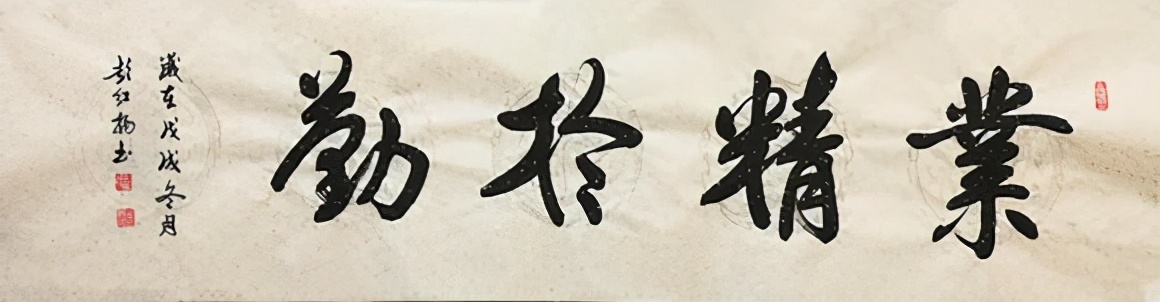 業精於勤
歲在戊戌冬月
彭紅楊书